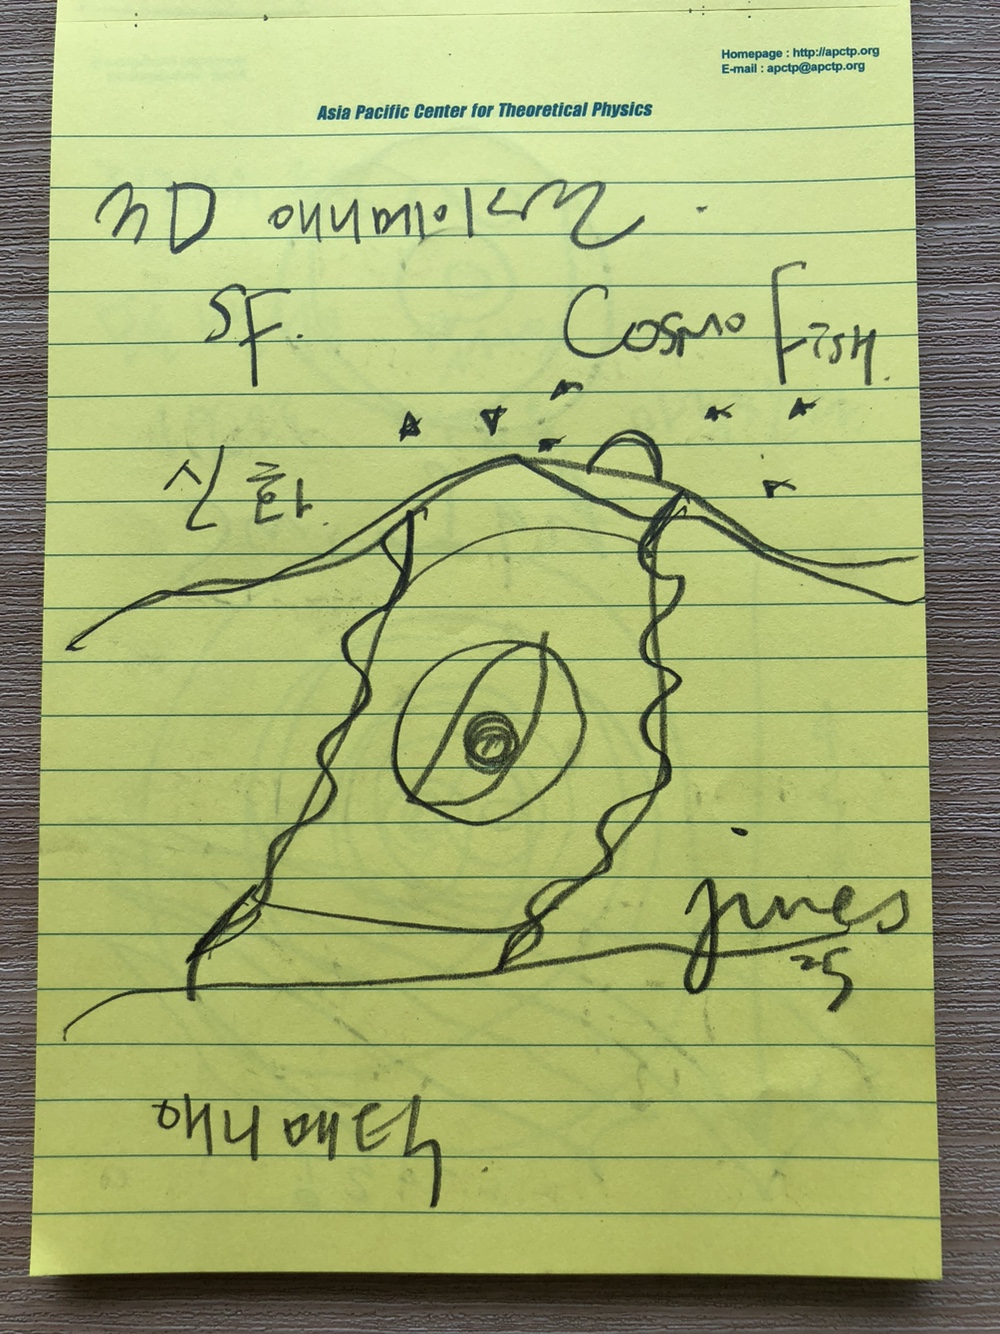 Homepage : http://apctp.org
E-mail : apctp@apctp.org
Asia Pacific Center for Theoretical Physics
3D 애니메이션.
SF.
Cosmo Fish.
신화.
25
애니메터.